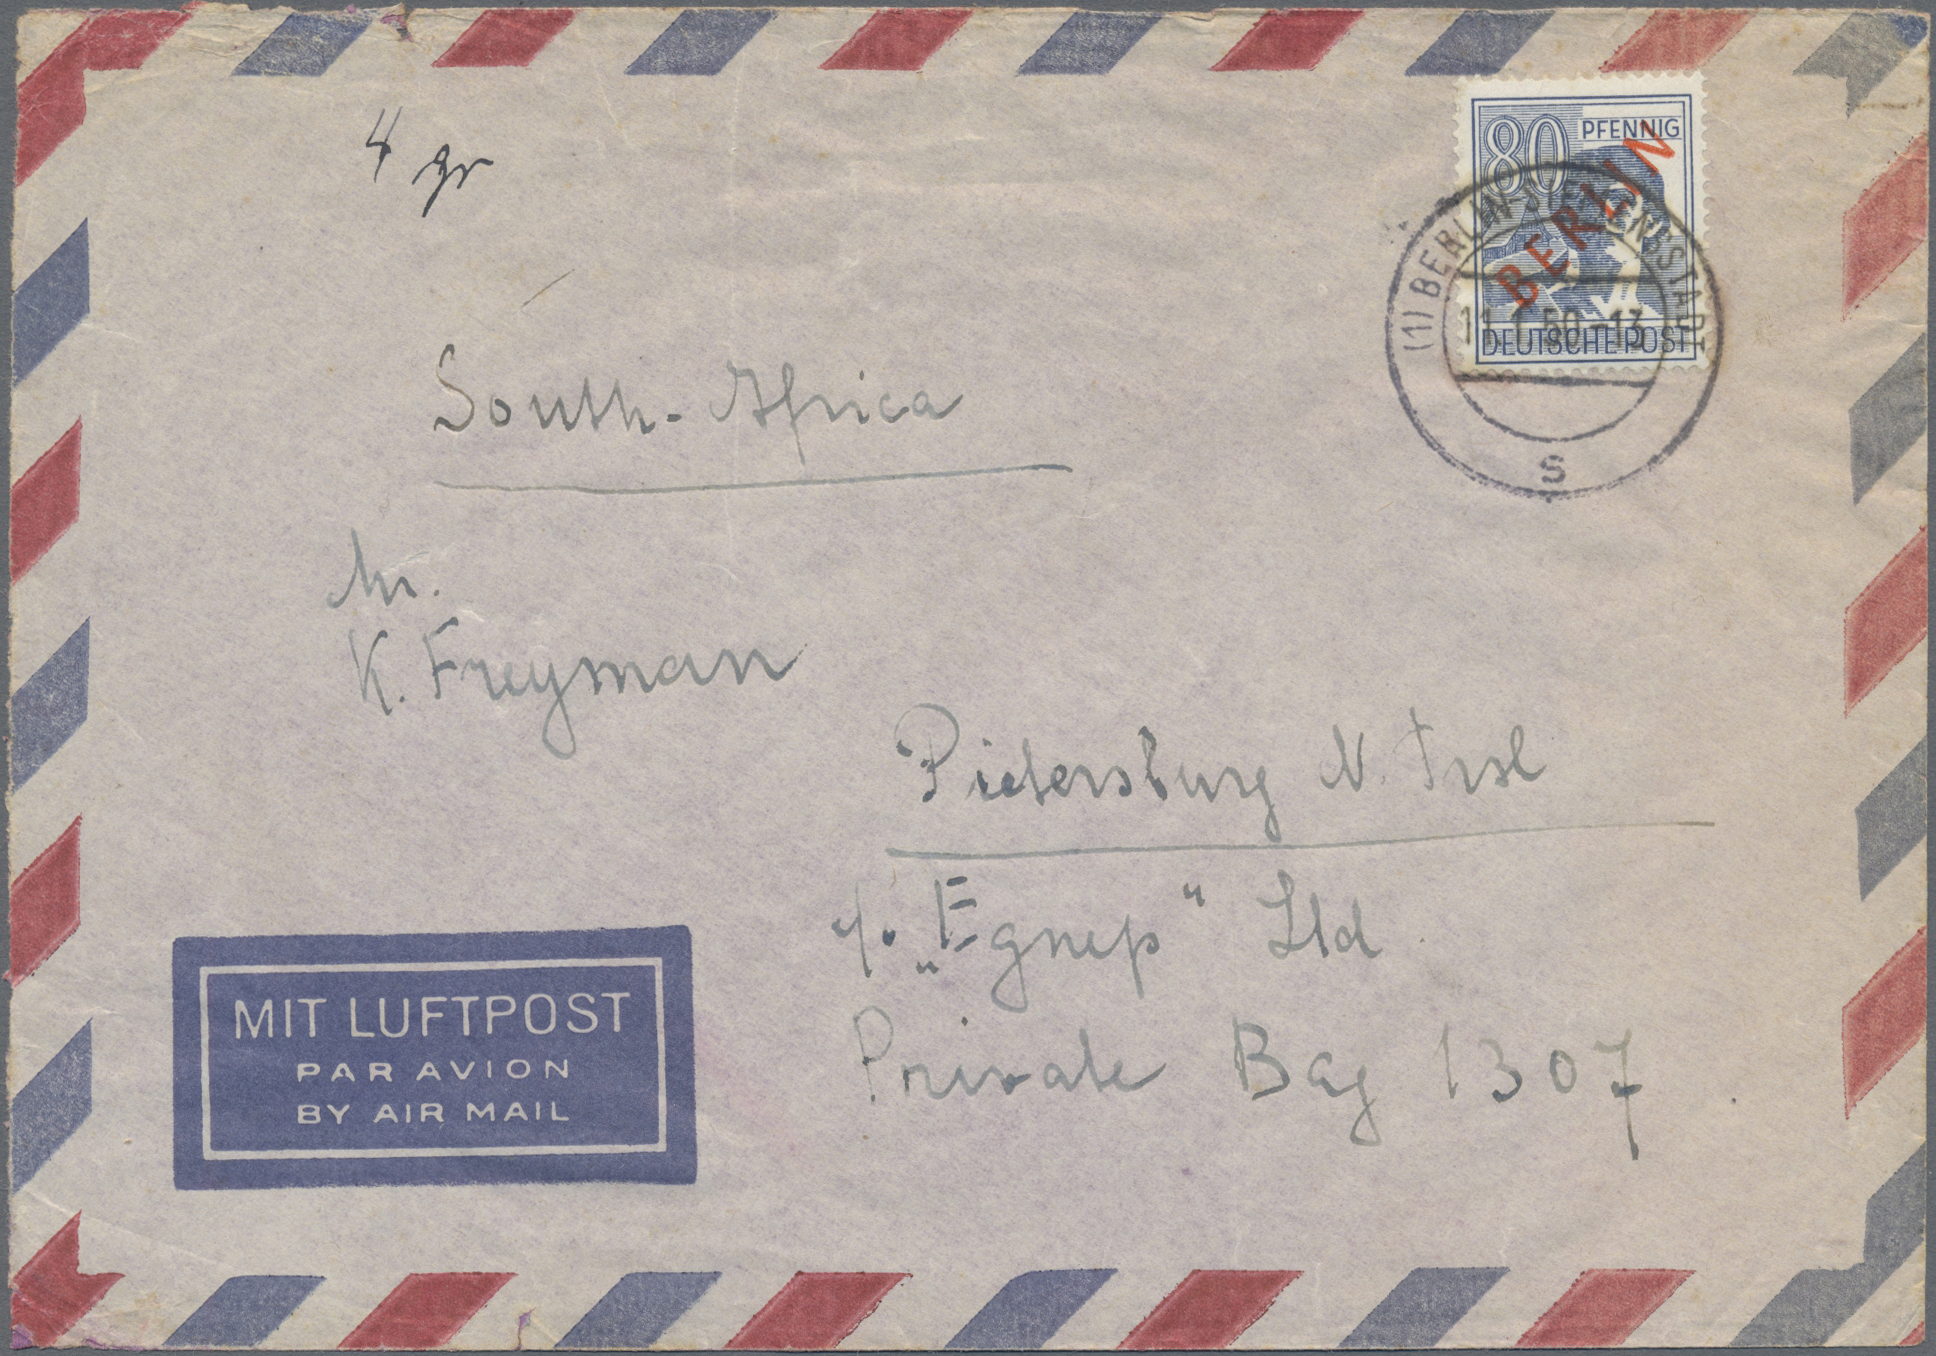 4 gr
80 PFENNIG
BERLIN
DEUTSCHE POST
(1) BERLIN-SIEMENSSTADT
11.1.50-13
s
South-Africa
Mr.
K. Freyman
Pietersburg N. Trsl
c/o. „Egnep“ Ltd
Private Bag 1307
MIT LUFTPOST
PAR AVION
BY AIR MAIL